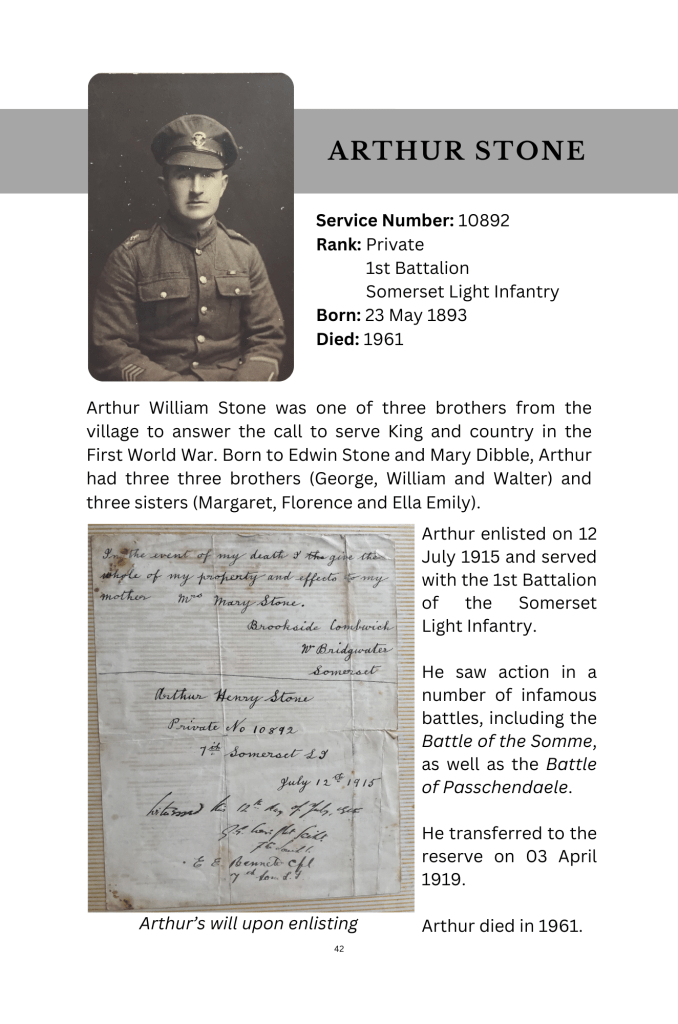 ARTHUR STONE
Service Number: 10892
Rank: Private
1st Battalion
Somerset Light Infantry
Born: 23 May 1893
Died: 1961
Arthur William Stone was one of three brothers from the
village to answer the call to serve King and country in the
First World War. Born to Edwin Stone and Mary Dibble, Arthur
had three three brothers (George, William and Walter) and
three sisters (Margaret, Florence and Ella Emily).
In the event of my death I the give the
whole of my property and effects to my
mother Mrs Mary Stone.
Brookside Combwich
Nr Bridgwater
Somerset
Arthur Henry Stone
Private No 10892
7th Somerset L I
July 12th 1915
Witnessed this 12th day of July, 1915
E E Bennett Cpl
7th Som. L.I
Arthur's will upon enlisting
Arthur enlisted on 12
July 1915 and served
with the 1st Battalion
of the Somerset
Light Infantry.
He saw action in a
number of infamous
battles, including the
Battle of the Somme,
as well as the Battle
of Passchendaele.
He transferred to the
reserve on 03 April
1919.
Arthur died in 1961.
42